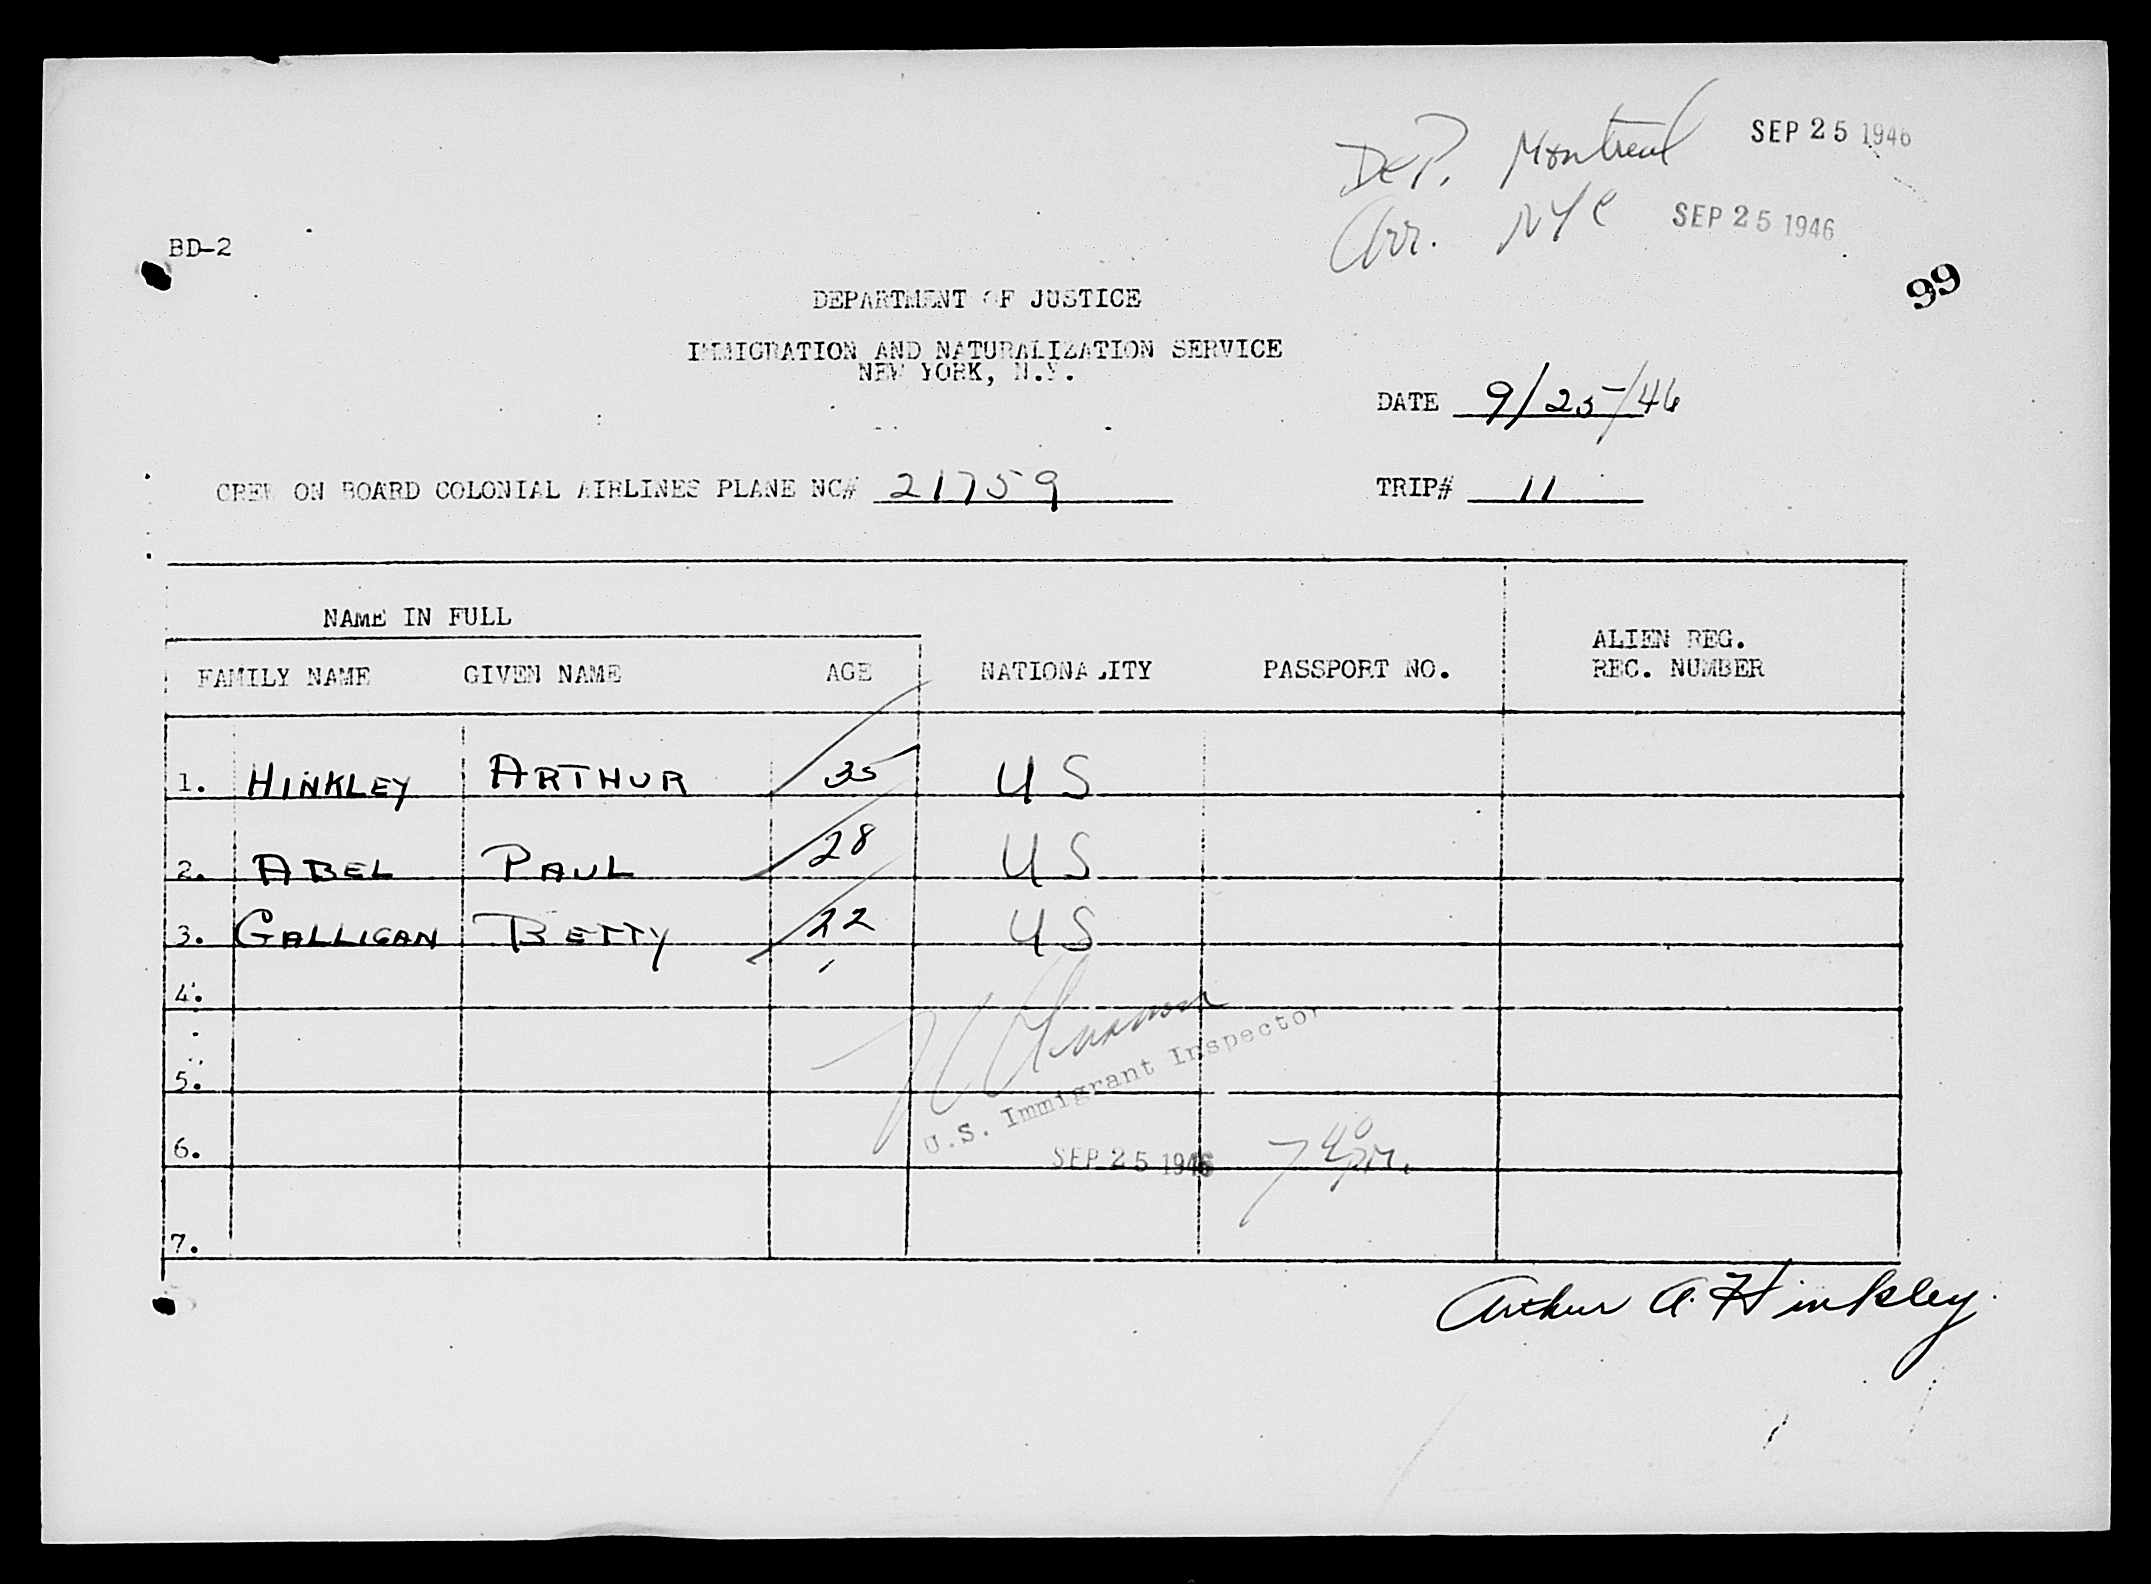 Dep. Montreal SEP 25 1946
Arr. NYC SEP 25 1946
BD-2
99
DEPARTMENT OF JUSTICE
IMMIGRATION AND NATURALIZATION SERVICE
NEW YORK, N.Y.
DATE 9/25/46
CREW ON BOARD COLONIAL AIRLINES PLANE NC# 21759 TRIP# 11
NAME IN FULL
ALIEN REG.
FAMILY NAME GIVEN NAME AGE NATIONALITY PASSPORT NO. REC. NUMBER
1. HINKLEY ARTHUR 35 US
2. ABEL PAUL 28 US
3. GALLIGAN BETTY 22 US
4.
U.S. Immigrant Inspector
5.
6. SEP 25 1946 7 40 pm.
7.
Arthur A. Hinkley